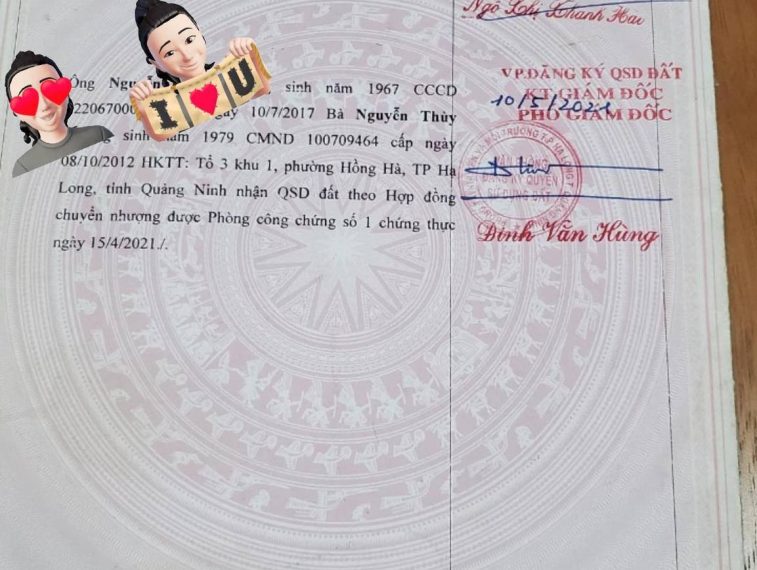 Ngô Thị Thanh Hải
Ông Nguyễn sinh năm 1967 CCCD
10/7/2017 Bà Nguyễn Thùy
sinh năm 1979 CMND 100709464 cấp ngày
08/10/2012 HKTT: Tổ 3 khu 1, phường Hồng Hà, TP Hạ
Long, tỉnh Quảng Ninh nhận QSD đất theo Hợp đồng
chuyển nhượng được Phòng công chứng số 1 chứng thực
ngày 15/4/2021./.
I U
VP.ĐĂNG KÝ QSD ĐẤT
KT.GIÁM ĐỐC
10/5/2021
PHÓ GIÁM ĐỐC
VĂN PHÒNG
ĐĂNG KÝ QUYỀN
SỬ DỤNG ĐẤT
Đinh Văn Hùng